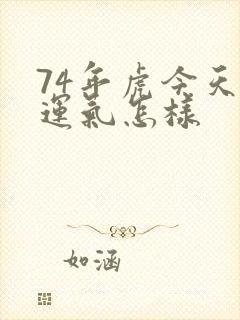 74年虎今天
運氣怎樣
如涵